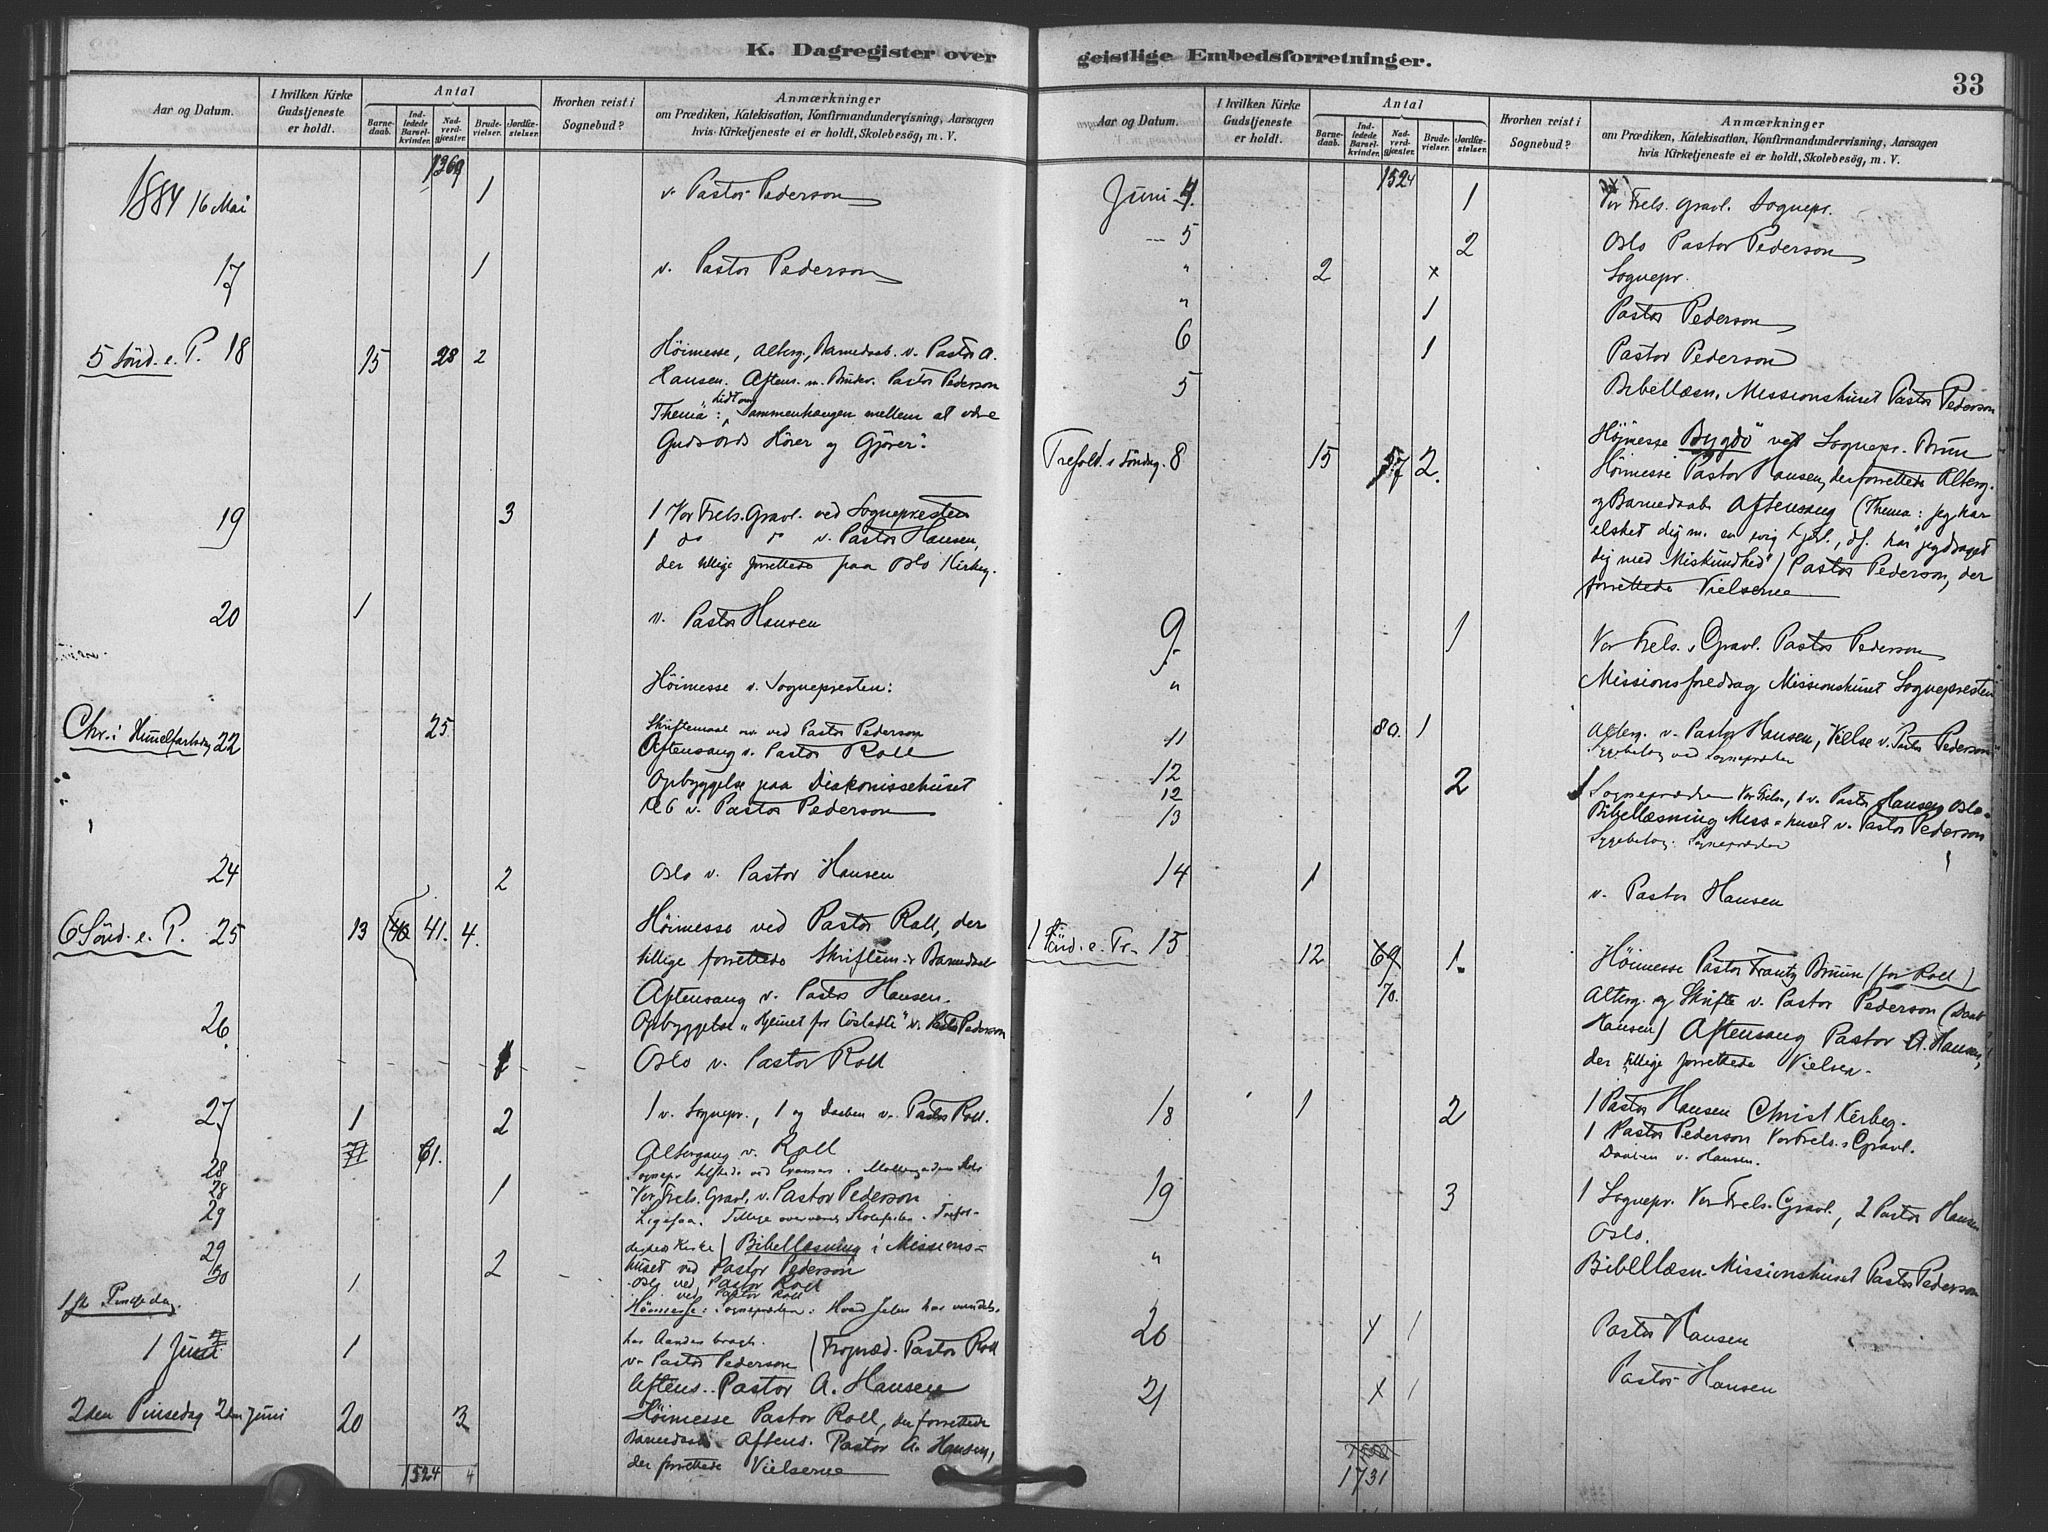 K. Dagregister over
Aar og Datum.
I hvilken Kirke Gudstjeneste er holdt.
Antal
Barnedaab.
Indledede Barselkvinder.
Nadverdgjæster.
Brudevielser.
Jordfæstelser.
Hvorhen reist i Sognebud?
Anmærkninger
om Prædiken, Katekisation, Konfirmandundervisning, Aarsagen
hvis Kirketjeneste ei er holdt, Skolebesög, m. V.
1369
1884 16 Mai 1 v. Pastor Pederson
17 1 v. Pastor Pederson
5 Sönd. e. P. 18 15 28 2 Höimesse, Alterg., Barnedaab. v. Pastor A.
Hansen. Aftens. m. Brudev. Pastor Pederson
Thema: Lidt om Sammenhangen mellem at være
Guds Ords Hörer og Gjörer.
19 3 1 Vor Frels. Gravl. ved Sognepresten
1 do do v. Pastor Hansen,
der tillige forrettede paa Oslo Kirkeg.
20 1 v. Pastor Hansen
Höimesse v. Sognepresten:
Chr. i Himelfartsdag 22 25. Skriftemaal ved Pastor Pederson
Aftensang v. Pastor Roll
Opbyggelse paa Diakonissehuset
Kl 6 v. Pastor Pederson
24 2 Oslo v. Pastor Hansen
6 Sönd. e. P. 25 13 (40 41. 4. Höimesse ved Pastor Roll, der
tillige forrettede Skriftem. & Barnedaab
Aftensang v. Pastor Hansen.
26. Opbyggelse "Hjemet for " v. Pastor Pederson
1 Oslo v. Pastor Roll
27 1 2 1 v. Sognepr., 1 og Daaben v. Pastor Roll.
61. Altergang v. Roll
28 Sognepr. tilstede ved Examen i Möllergadens Skole
28 1 Vor Frels. Gravl. v. Pastor Pederson
29 Ligesaa. Tillige overværet Skolefesten
29 Kirke / Bibellæsning i Missions-
huset ved Pastor Pederson
30 1 2 Oslo ved Pastor Roll
ved Pastor Roll
1ste Pinsedag. Höimesse: Sognepræsten: Hvad
1 Juni 1 har Aanden bragt. / Pastor Roll
v. Pastor Pederson
Aftens. Pastor A. Hansen
2den Pinsedag 2den Juni 20 3 Höimesse Pastor Roll, der forrettede
Barnedaab. Aftens. Pastor A. Hansen,
der forrettede Vielserne
1524 4
geistlige Embedsforretninger.
33
Aar og Datum.
I hvilken Kirke Gudstjeneste er holdt.
Antal
Barnedaab.
Indledede Barselkvinder.
Nadverdgjæster.
Brudevielser.
Jordfæstelser.
Hvorhen reist i Sognebud?
Anmærkninger
om Prædiken, Katekisation, Konfirmandundervisning, Aarsagen
hvis Kirketjeneste ei er holdt, Skolebesög, m. V.
1524
Juni 4. 1 Vor Frels. Gravl. Sognepr.
5 2 Oslo Pastor Pederson
" 2 x Sognepr.
" 1 Pastor Pederson
6 1 Pastor Pederson
5 Bibellæsn. Missionshuset Pastor Pederson
Höjmesse Bygdö ved Sognepr. Bruun
Trefold. Söndag. 8 15 57 2. Höimesse Pastor Hansen, der forrettede Alterg.
og Barnedaab. Aftensang (Thema: jeg har
elsket dig m. en evig Kjærl., df. har jeg draget
dig med Miskundhed") Pastor Pederson, der
forrettede Vielserne
9 1 Vor Frels. Gravl. Pastor Pederson
" Missionsforedrag Missionshuset Sognepresten
11 80. 1 Alterg. v. Pastor Hansen, Vielse v. Pastor Pederson
Sygebesög ved Sognepræsten
12 2 1 Sognepræsten Vor Frels., 1 v. Pastor Hansen Oslo
12 Bibellæsning Miss-huset v. Pastor Pederson
13 Sygebesög: Sognepræsten
14 1 v. Pastor Hansen
1 Sönd. e. Tr. 15 12 69 1. Höimesse Pastor Frantz Bruun (for Roll)
70. Alterg. og Skrifte v. Pastor Pederson (Daab
Hansen) Aftensang Pastor A. Hansen,
der tillige forrettede Vielsen.
18 1 2 1 Pastor Hansen Christ Kirkeg.
1 Pastor Pederson Vor Frels. Gravl.
Daaben v. Hansen.
19 3 1 Sognepr. Vor Frels. Gravl., 2 Pastor Hansen
Oslo.
" Bibellæsn. Missionshuset Pastor Pederson
20 x 1 Pastor Hansen
21 x 1 Pastor Hansen
1731